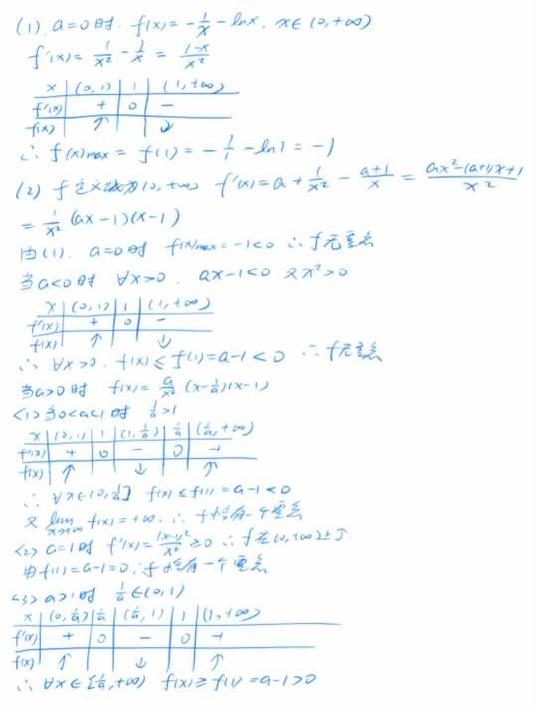 (1) a=0时. f(x)=-1/x-lnx. x∈(0,+∞)
f'(x)=1/x²-1/x=(1-x)/x²
x | (0,1) | 1 | (1,+∞)
f'(x) | + | 0 | -
f(x) | ↑ | | ↓
∴ f(x)max=f(1)=-1/1-ln1=-1
(2) f定义域为(0,+∞) f'(x)=a+1/x²-(a+1)/x=(ax²-(a+1)x+1)/x²
=1/x²(ax-1)(x-1)
由(1). a=0时 f(x)max=-1<0 ∴f无零点
当a<0时 ∀x>0. ax-1<0 又x²>0
x | (0,1) | 1 | (1,+∞)
f'(x) | + | 0 | -
f(x) | ↑ | | ↓
∴ ∀x>0. f(x)≤f(1)=a-1<0 ∴f无零点
当a>0时 f(x)=a/x²(x-1/a)(x-1)
<1>当0<a<1时 1/a>1
x | (0,1) | 1 | (1,1/a) | 1/a | (1/a,+∞)
f'(x) | + | 0 | - | 0 | +
f(x) | ↑ | | ↓ | | ↑
∴ ∀x∈(0,1/a] f(x)≤f(1)=a-1<0
又 lim x→+∞ f(x)=+∞. ∴f恰有一个零点
<2> a=1时 f'(x)=(x-1)²/x²≥0 ∴f在(0,+∞)上↑
由f(1)=a-1=0. ∴f恰有一个零点
<3> a>1时 1/a∈(0,1)
x | (0,1/a) | 1/a | (1/a,1) | 1 | (1,+∞)
f'(x) | + | 0 | - | 0 | +
f(x) | ↑ | | ↓ | | ↑
∴ ∀x∈[1/a,+∞) f(x)≥f(1)=a-1>0